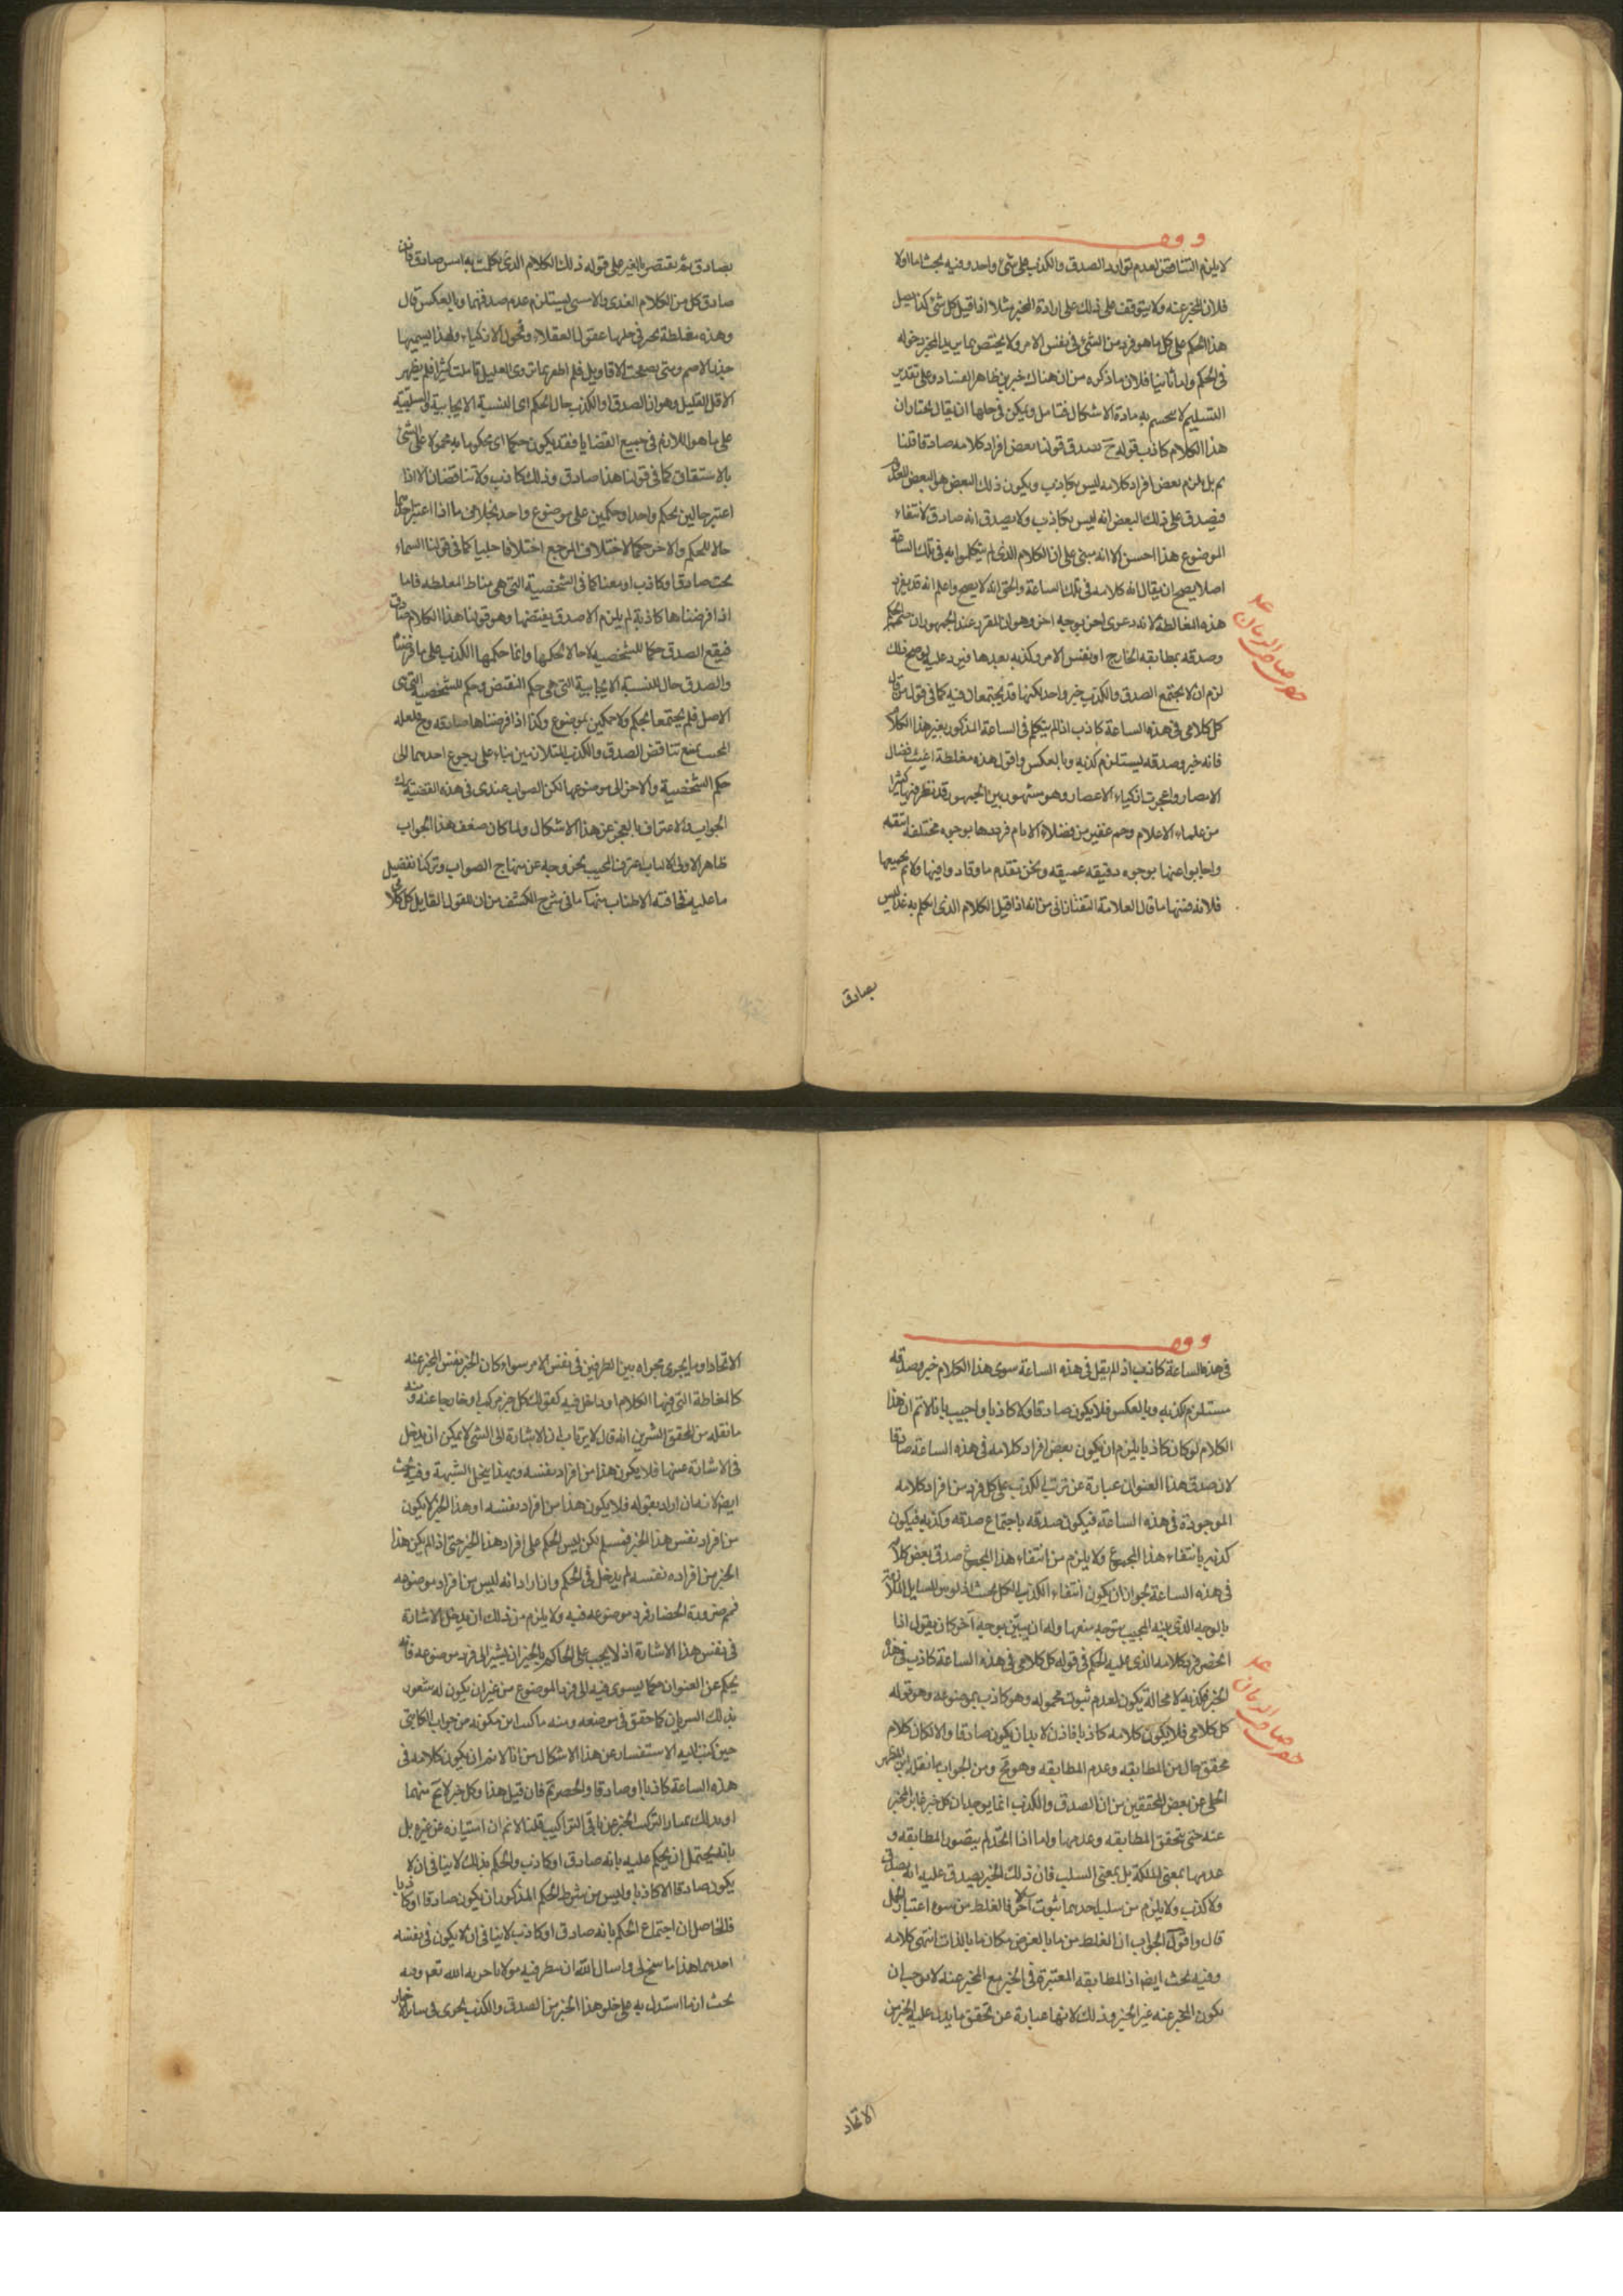 وقف
لا يلزم التناقض لعدم توارد الصدق والكذب على شئ واحد وفيه بحث اما اولا
فلان المخبر عنه ولا يتوقف على ذلك على ارادة المخبر مثلا اذا قيل كل شئ كذا
هذا الحكم على كل ما هو فرد من الشئ فى نفس الامر ولا يختص بما يريد المخبر دخوله
فى الحكم واما ثانيا فلان ما ذكره من ان هناك خبرين ظاهر الفساد وعلى تقدير
التسليم لا ينحسم به مادة الاشكال فتامل ويمكن فى حلها ان يقال نختار ان
هذا الكلام كاذب قوله ح يصدق قولنا بعض افراد كلامه صادق قلنا
لا نم بل يلزم بعض افراد كلامه ليس بكاذب ويكون ذلك البعض هو البعض
فيصدق على ذلك البعض انه ليس بكاذب ولا يصدق انه صادق لانتفاء
الموضوع هذا احسن الا انه مبنى على ان الكلام الذى لم يتكلموا به فى تلك الساعة
اصلا يصح ان يقال انه كلامه فى تلك الساعة والحق انه لا يصح واعلم انه قد يقرر
هذه المغالطة لانه دعوى اخرى بوجه اخر وهو ان المقرر عند الجمهور ان
وصدقه بمطابقه الخارج او نفس الامر وكذبه بعدمها فيرد عليه لو صح ذلك
لزم ان لا يجتمع الصدق والكذب خبر واحد لكنهما قد يجتمعان فيه كما فى قول من قال
كل كلامى فى هذه الساعة كاذب اذا لم يتكلم فى الساعة المذكور بغير هذا الكلام
فانه خبر وصدقه يستلزم كذبه وبالعكس واقول هذه مغلطة اعيت فضلا
الامصار واعجزت اذكياء الاعصار وهو مشهور بين الجمهور قد نظر فيها كثيرا
من علماء الاعلام وجم غفير من فضلاء الايام فردها بوجوه مختلفة
واجابوا عنها بوجوه دقيقه عميقه ونحن نقدم ما وقاد وافيها ولا نم جميعها
فلانه منها ما قال العلامة التفتازانى من انه اذا قيل الكلام الذى اتكلم به غدا ليس
بصادق
بصادق ثم يقتصر بالغير على قوله ذلك الكلام الذى تكلمت به امس صادق فان
صادق كل من الكلام الغدى والامسى يستلزم عدم صدقهما وبالعكس قال
وهذه مغلطة تحير فى حلها عقول العقلاء وفحول الاذكياء ولهذا يسميها
جذر الاصم وحتى تصفحت الاقاويل فلم اظفر بما يروى الغليل وتاملت كثيرا فلم يظهر
الا اقل القليل وهو ان الصدق او الكذب حال الحكم اى النسبة الايجابية او السلبية
على ما هو اللازم فى جميع القضايا فقد يكون حكما اى محكوما به محمولا على الشئ
بالاشتقاق كما فى قولنا هذا صادق وذلك كاذب ولا يتناقضان الا اذا
اعتبر حالين لحكم واحد او حكمين على موضوع واحد بخلاف ما اذا اعتبر احدهما
حالا للحكم والاخر حكما لاختلاف المرجع اختلافا جليا كما فى قولنا السماء
تحت صادقا وكاذب او معنا كما فى الشخصية التى هى مناط المغلطه فاما
اذا فرضناها كاذبة لم يلزم الا صدق نقيضها وهو قولنا هذا الكلام صادق
فيقع الصدق حكما للشخصيه لا حالا لحكمها وانما حكمها الكذب على ما فرضنا
والصدق حال للنسبة الايجابية التى هى حكم النقيض وحكم للشخصية التى هى
الاصل فلم يجتمعا لحكم ولا حكمين بموضوع وكذا اذا فرضناها صادقه وح فلعله
المجيب يمنع تناقض الصدق والكذب المتلازمين بناء على رجوع احدهما الى
حكم الشخصية والاخر الى موضوعها لكن الصواب عندى فى هذه القضية ترك
الجواب والاعتراف بالعجز عن هذا الاشكال ولما كان ضعف هذا الجواب
ظاهر الاولى الالباب اعترف المجيب بخروجه عن منهاج الصواب وتركنا تفصيل
ما عليه مخافة الاطناب منها ما فى شرح الكشف من ان القول القايل كل كلامى
وقف
فى هذه الساعة كاذب اذا لم يقل فى هذه الساعة سوى هذا الكلام خبر وصدقه
مستلزم لكذبه وبالعكس فلا يكون صادقا ولا كاذبا واجيب بانا لا نم ان هذا
الكلام لو كان كاذبا يلزم ان يكون بعض افراد كلامه فى هذه الساعة صادقا
لان صدق هذا العنوان عبارة عن ترتب الكذب على كل فرد من افراد كلامه
الموجودة فى هذه الساعة فيكون صدقه باجتماع صدقه وكذبه فيكون
كذبه بانتفاء هذا المجموع ولا يلزم من انتفاء هذا المجموع صدق بعض كلامه
فى هذه الساعة لجواز ان يكون انتفاء الكذب للكل
بالوجه الذى بينه المجيب يتوجه منعها وله ان يبين بوجه آخر كان يقول اذا
انحصر فرد كلامه الذى عليه الحكم فى قوله كل كلامى فى هذه الساعة كاذب فى هذا
الخبر فكذبه لا محالة يكون لعدم ثبوت محموله وهو كاذب بموضوعه وهو قوله
كل كلامى فلا يكون كلامه كاذبا فاذن لا بد ان يكون صادقا والا لكان كلام
محقق خال من المطابقه وعدم المطابقه وهو مح ومن الجواب ما نقله ابن المطهر
الحلى عن بعض المحققين من ان الصدق والكذب انما يوجدان كل خبر غاير الخبر
عنه حتى يتحقق المطابقه وعدمها واما اذا اتحد لم يتصور المطابقه و
عدمها بمعنى الملكة بل بمعنى السلب فان ذلك الخبر يصدق عليه انه لا صدق
ولا كذب ولا يلزم من سلب احدهما ثبوت الاخر فالغلط من سوء اعتبار الحمل
قال واقول الجواب ان الغلط من ما بالعرض مكان ما بالذات انتهى كلامه
وفيه بحث ايضا اذ المطابقه المعتبرة فى الخبر مع المخبر عنه لا يوجب ان
يكون المخبر عنه غير الخبر وذلك لانها عبارة عن تحقق ما يدل عليه الخبر من
الاتحاد
الاتحاد او ما يجرى مجراه بين الطرفين فى نفس الامر سواء كان الخبر نفس المخبر عنه
كالمغالطة التى فيها الكلام او داخل فيه كقولك كل خبر مركب او خارجا عنه ومنه
ما نقله من المحقق الشريف انه قال لا يرتاب ان الاشارة الى الشئ لا يمكن ان يدخل
فى الاشارة عينها فلا يكون هذا من افراد نفسه وبهذا ينحل الشبهة وفيه بحث
ايضا لانه ان اراد بقوله فلا يكون هذا من افراد نفسه او هذا الخبر لا يكون
من افراد نفس هذا الخبر فمسلم لكن ليس الحكم على افراد هذا الخبر حتى اذا لم يكن هذا
الخبر من افراده نفسه لم يدخل فى الحكم وان اراد انه ليس من افراد موضوعه
فمم ضرورة انحصار فرد موضوعه فيه ولا يلزم من ذلك ان يدخل الاشارة
فى نفس هذا الاشارة اذ لا يجب على الحاكم بالخبر ان يشير الى فرد موضوعه فانه
يحكم عن العنوان حكما ليسرى فيه الى فرد الموضوع من غير ان يكون له شعور
بذلك السريان كما حقق فى موضعه ومنه ما كتب ابن كمونه من جواب الكاتبى
حين كتب اليه الاستفسار عن هذا الاشكال من انا لا نم ان يكون كلامه فى
هذه الساعة كاذبا او صادقا والحصر نم فان قيل هذا وكل خبر لا يخ منهما
او بذلك يمتاز التركيب الخبر عن باقى التراكيب قلنا لا نم ان امتيازه عن غيره بل
بانه يحتمل ان يحكم عليه بانه صادق او كاذب والحكم بذلك لا ينافى ان لا
يكون صادقا ولا كاذبا وليس من شرط الحكم المذكور ان يكون صادقا او كاذبا
فالحاصل ان اجتماع الحكم بانه صادق او كاذب لا ينافى ان لا يكون فى نفسه
احدهما هذا ما سنح لى واسال الله ان ينظر فيه مولانا حرسه الله نعم وفيه
بحث اذ ما استدل به على خلو هذا الخبر من الصدق والكذب يجرى فى سائر الاخبار